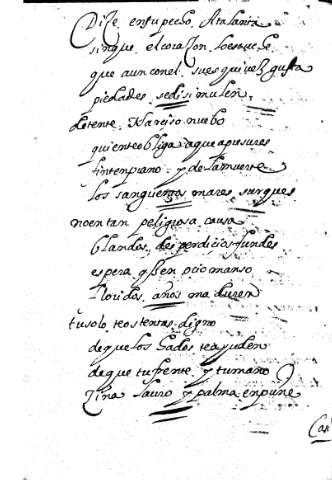 Dize, ensupecho, Atalanta
sinque, el corazon, loescuche
que aun con el, su esquivez gusta
piedades, sedisimulen.
detente, Narciso nuebo
quienteobliga, aque apresures
tintenpiano, y dela muerte
los sangrientos mares, surques
noentan peligrosa causa
blandos, desperdicios fundes
espera, q̃ sen ocio manso
floridos, años maduren
tu solo, te ostentas digno
de que los hados te ayuden
de que tu frente, y tu mano
ziña lauro, y palma enpuñe